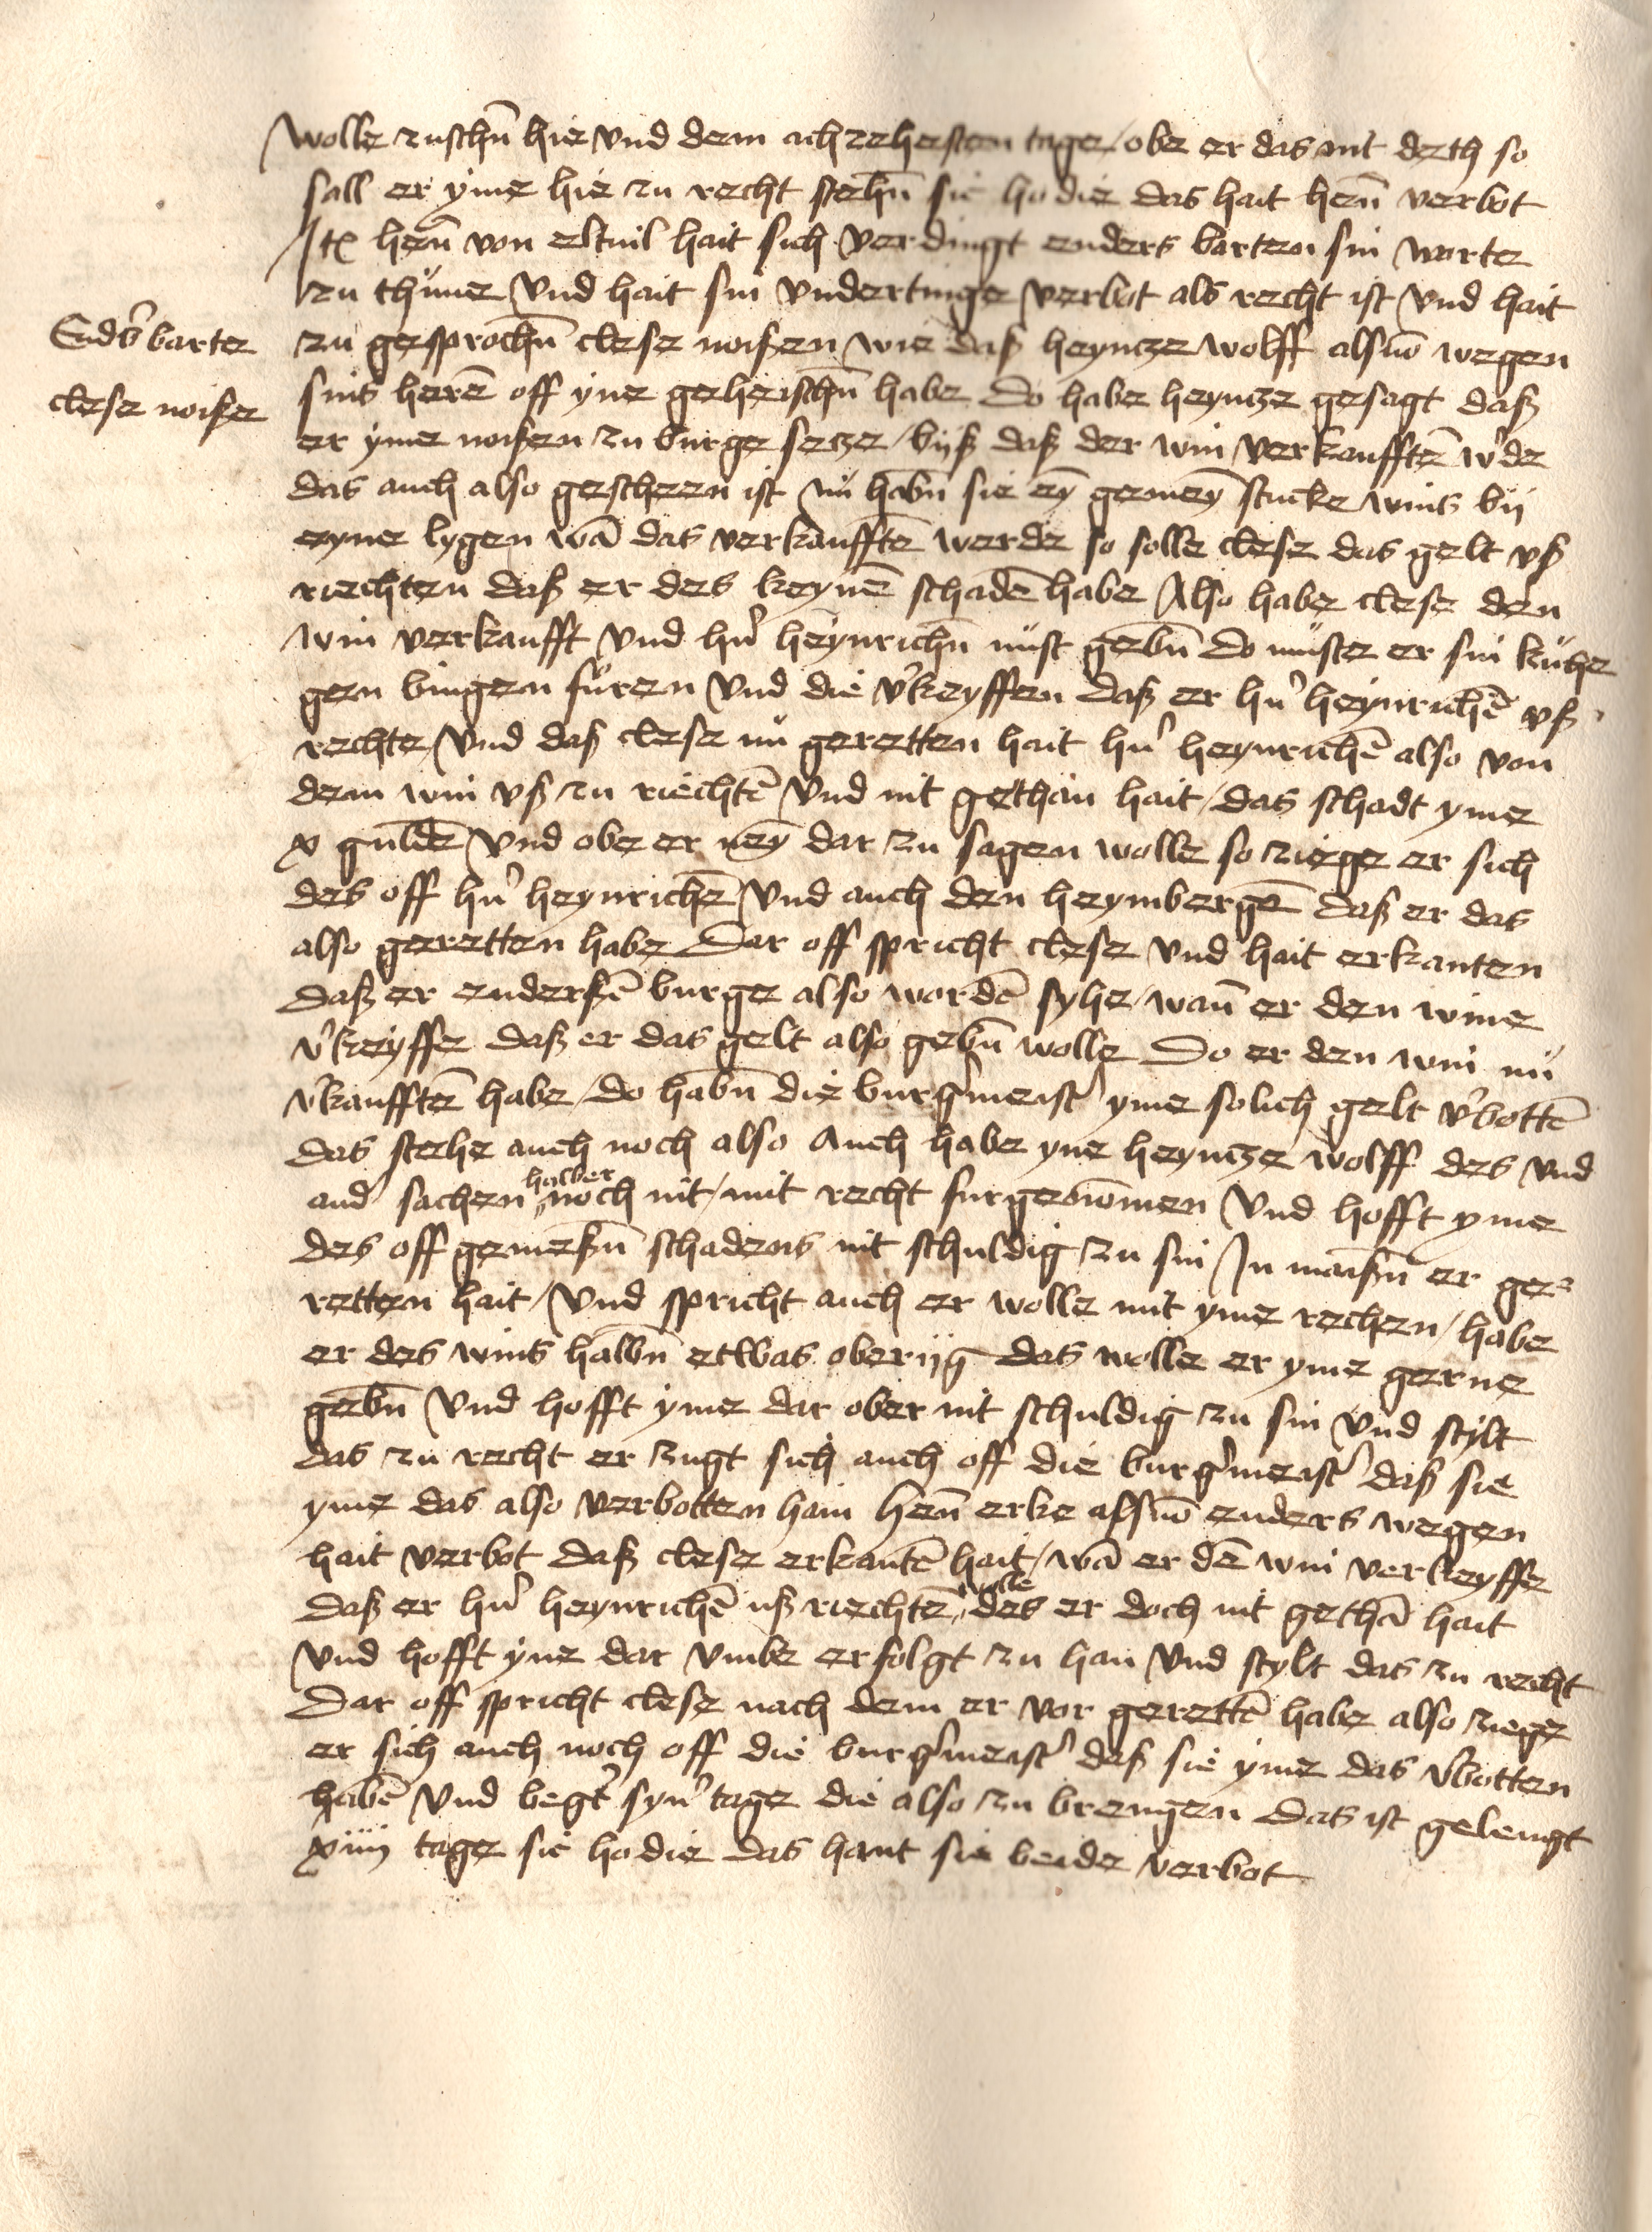 wolle zuschñ hie vnd dem achzehesten tage / obe er das nit deth so
sall er yme hie zu recht stehñ sic hodie das hait heñ verbot
Itẽ heñ von eltuil hait sich verdingt enders barten sin worte
zu thune vnd hait sin vndertinge verbot als recht ist vnd hait
Endẽs barte
zu gesprochñ clese noißen wie daß heyntze wolff alsuõ wegen
clese noiße
sins herẽ off yne geheischñ habe Do habe heyntze gesagt daß
er yme noißen zu burge setze / bijß daß der win verkaufftẽ wde
das auch also gescheen ist nu habñ sie eỹ gemeyñ stucke wins bij
eyne lygen wã das verkaufftẽ werde so solle clese das gelt vß
riechten daß er des keynẽ schadẽ habe Also habe clese den
win verkaufft vnd hñ heynrichñ nust gebñ Do muste er sin kuhe
gen bingen furen vnd die vkeyffen daß er hñ heynrichẽ vß
rechte / vnd daß clese nu geretten hait hñ heynrichẽ also von
dem win vß zu riechtẽ vnd nit gethan hait / das schadt yme
x guldẽ vnd obe er neỹ dar zu sagen wolle so ziege er sich
des off hñ heynrichẽ vnd auch den heymbergẽ daß er das
also geretten habe Dar off spricht clese vnd hait erkanten
Daß er enderßẽ burge also wordẽ syhe / wañ er den wine
vkeyffe daß er das gelt also gebñ wolle Do er den win nu
vkaufftẽ habe / do habñ die burgmeist yme solich gelt vbottẽ
Das stehe auch noch also Auch habe yne heyntze wolff des vnd
and sachen halber noch nit / mit recht furgenõmen vnd hofft yme
des off gemeßñ schadens nit schuldig zu sin In maißñ er ge
retten hait / vnd spricht auch er wolle mit yme rechen / habe
er des wins halbñ etwas oberijg das wolle er yme gerne
gebñ vnd hofft yme dar ober nit schuldig zu sin vnd stylt
das zu recht er zugt sich auch off die burgmeist daß sie
yme das also verbotten hain heñ erke alsuõ enders wegen
hait verbot daß clese erkantẽ hait / wã er dẽ win verkeyffe
Daß er hñ heynrichẽ uß riechtẽ wolle des er doch nit gethã hait
vnd hofft yne dar vmbe erfolgt zu han vnd stylt das zu recht
Dar off spricht clese nach dem er vor gerettẽ habe also ziege
er sich auch noch off die burgmeist daß sie yme das vbotten
habẽ vnd begt syn tage die also zu brengen Das ist gelengt
xiiij tage sic hodie das hant sie beide verbot